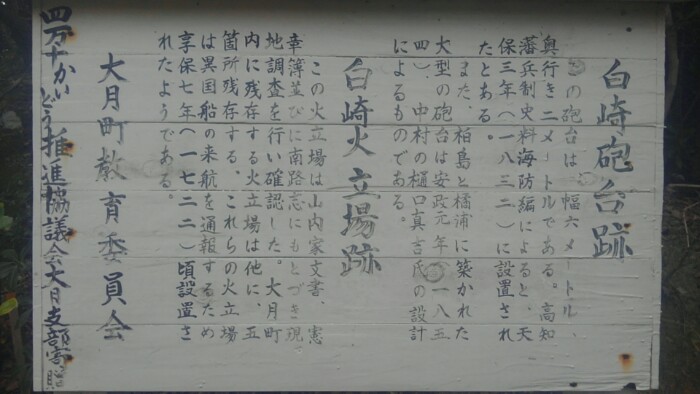 白崎砲台跡
この砲台は、幅六メートル、
奥行き二メートルである。高知
藩兵制史料海防編によると、天
保三年(一八三二)に設置され
たとある。
また、柏島と橘浦に築かれた
大型の砲台は安政元年(一八三
四)、中村の樋口真吉氏の設計
によるものである。
白崎火立場跡
この火立場は山内家文書、憲
章簿並びに南路志にもとづき現
地調査を行い確認した。大月町
内に残存する火立場は他に、五
箇所残存する。これらの火立場
は異国船の来航を通報するため
享保七年(一七二二)頃設置さ
れたようである。
大月町教育委員会
四万十かいどう推進協議会大月支部寄贈